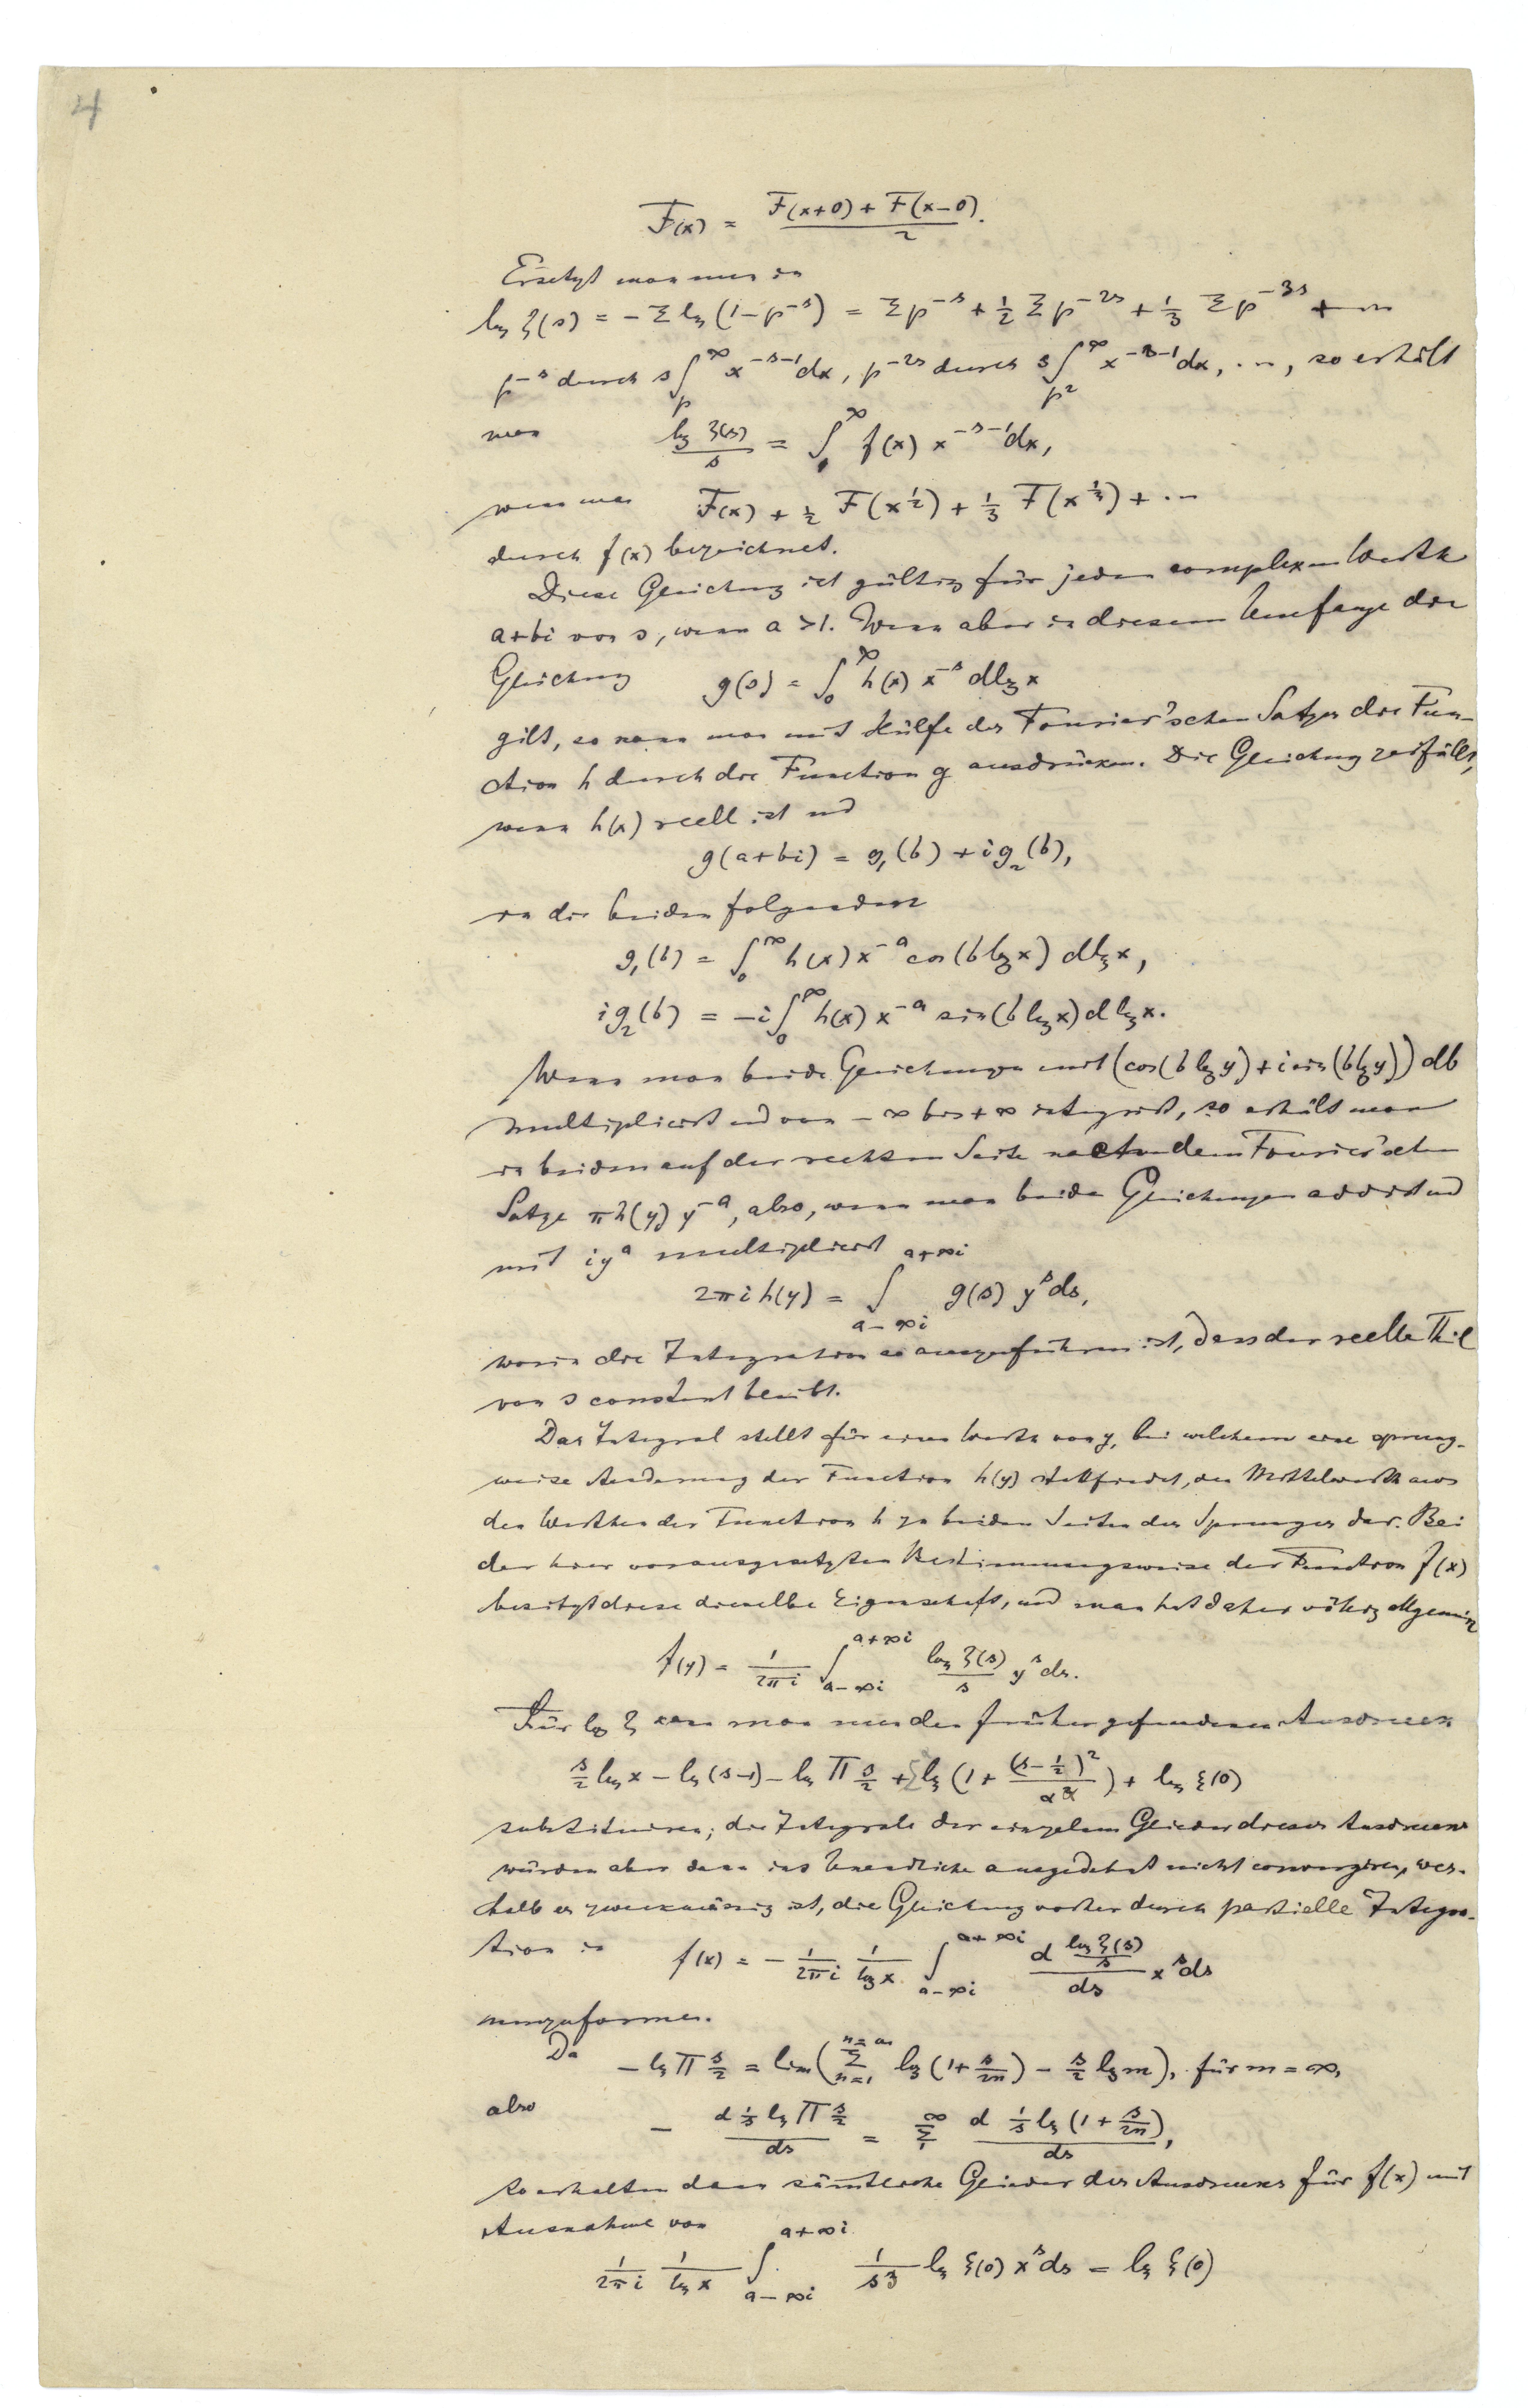 4
F(x) = (F(x+0) + F(x−0))/2.
Ersetzt man nun in
log ζ(s) = − Σ log (1−p^{−s}) = Σ p^{−s} + 1/2 Σ p^{−2s} + 1/3 Σ p^{−3s} + ⋯
p^{−s} durch s∫_p^∞ x^{−s−1}dx, p^{−2s} durch s∫_{p²}^∞ x^{−s−1}dx, ⋯, so erhält
man log ζ(s)/s = ∫_1^∞ f(x) x^{−s−1}dx,
wenn man F(x) + 1/2 F(x^{1/2}) + 1/3 F(x^{1/3}) + ⋯
durch f(x) bezeichnet.
Diese Gleichung ist gültig für jeden complexen Werth
a+bi von s, wenn a >1. Wenn aber in diesem Umfange die
Gleichung g(s) = ∫_0^∞ h(x) x^{−s} dlog x
gilt, so kann man mit Hülfe des Fourier'schen Satzes die Fun-
ction h durch die Function g ausdrücken. Die Gleichung zerfällt,
wenn h(x) reell ist und
g(a+bi) = g₁(b) + ig₂(b),
in die beiden folgenden
g₁(b) = ∫_0^∞ h(x) x^{−a} cos(b log x) dlog x,
ig₂(b) = −i∫_0^∞ h(x) x^{−a} sin(b log x) dlog x.
Wenn man beide Gleichungen mit (cos(b log y) + i sin(b log y)) db
multipliciert und von −∞ bis +∞ integriert, so erhält man
in beiden auf der rechten Seite nach dem Fourier'schen
Satze πh(y) y^{−a}, also, wenn man beide Gleichungen addiert und
mit iy^a multipliciert
2πi h(y) = ∫_{a−∞i}^{a+∞i} g(s) y^s ds,
worin die Integration so auszuführen ist, dass der reelle Theil
von s constant bleibt.
Das Integral stellt für einen Werth von y, bei welchem eine sprung-
weise Aenderung der Function h(y) stattfindet, den Mittelwerth aus
den Werthen der Function h zu beiden Seiten des Sprunges dar. Bei
der hier vorausgesetzten Bestimmungsweise der Function f(x)
besitzt diese dieselbe Eigenschaft, und man hat daher völlig allgemein
f(y) = 1/(2πi) ∫_{a−∞i}^{a+∞i} log ζ(s)/s y^s ds.
Für log ζ kann man nun den früher gefundenen Ausdruck
s/2 log π − log (s−1) − log Π s/2 + Σ log (1 + (s−1/2)²/α²) + log ξ(0)
substituiren; die Integrale der einzelnen Glieder dieses Ausdrucks
würden aber dann ins Unendliche ausgedehnt nicht convergiren, wes-
halb es zweckmässig ist, die Gleichung vorher durch partielle Integra-
tion in f(x) = − 1/(2πi) 1/log x ∫_{a−∞i}^{a+∞i} d (log ζ(s)/s)/ds x^s ds
umzuformen.
Da − log Π s/2 = lim(Σ_{n=1}^{n=m} log (1+ s/2n) − s/2 log m), für m = ∞,
also − d 1/s log Π s/2 /ds = Σ_1^∞ d 1/s log (1 + s/2n)/ds,
so erhalten dann sämtliche Glieder des Ausdruckes für f(x) mit
Ausnahme von
1/(2πi) 1/log x ∫_{a−∞i}^{a+∞i} 1/s² log ξ(0) x^s ds = log ξ(0)